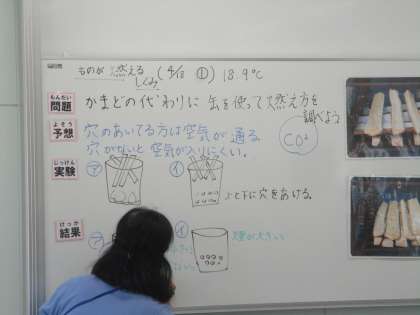 ものが燃える
しくみ
(4/18 ①) 18.9℃
もんだい
問題
かまどの代わりに 缶を使って燃え方を
調べよう
よそう
予想
穴のあいてる方は空気が通る
穴がないと空気が入りにくい。
CO²
じっけん
実験
ア
イ
上と下に穴をあける。
けっか
結果
ア
イ
煙が大きい